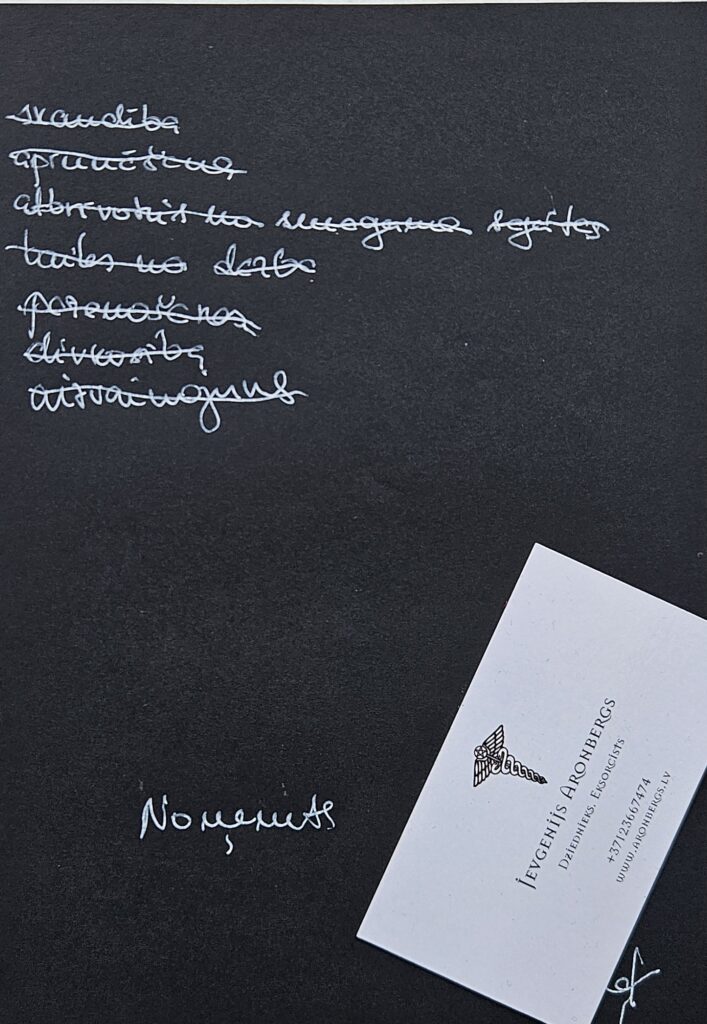 skaudība
aprunāšana
atbrīvotais no smagama sejas
bailes no darba
pārnešanas
divkosību
aizvainojums
Noņemts
Jevgenijs Aronbergs
Dziednieks. Eksorcists
+37123667474
www.aronbergs.lv